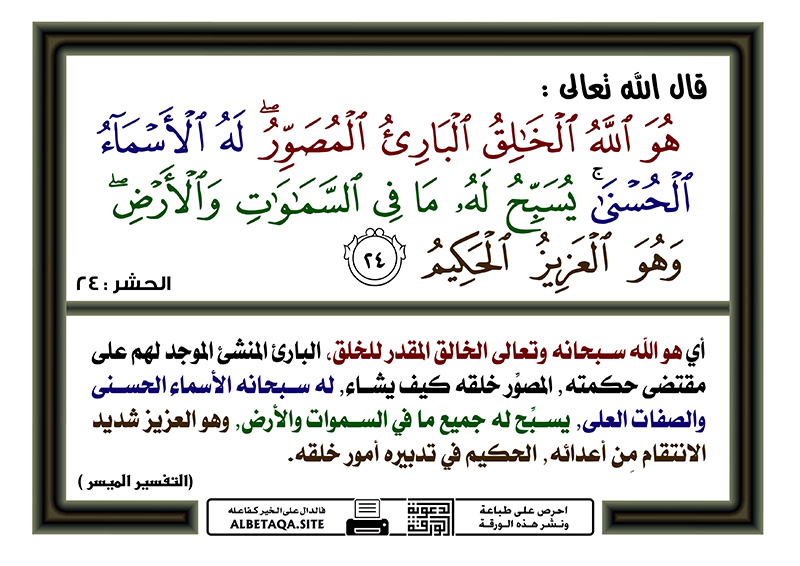 قال الله تعالى :
هُوَ ٱللَّهُ ٱلْخَٰلِقُ ٱلْبَارِئُ ٱلْمُصَوِّرُ ۖ لَهُ ٱلْأَسْمَآءُ
ٱلْحُسْنَىٰ ۚ يُسَبِّحُ لَهُۥ مَا فِى ٱلسَّمَٰوَٰتِ وَٱلْأَرْضِ ۖ
وَهُوَ ٱلْعَزِيزُ ٱلْحَكِيمُ ٢٤
الحشر : ٢٤
أي هو الله سبحانه وتعالى الخالق المقدر للخلق، البارئ المنشئ الموجد لهم على
مقتضى حكمته, المصوِّر خلقه كيف يشاء, له سبحانه الأسماء الحسنى
والصفات العلى, يسبِّح له جميع ما في السموات والأرض, وهو العزيز شديد
الانتقام مِن أعدائه, الحكيم في تدبيره أمور خلقه.
(التفسير الميسر )
احرص على طباعة
ونشر هذه الورقة
لدعوية
الورقة
فالدال على الخير كفاعله
ALBETAQA.SITE